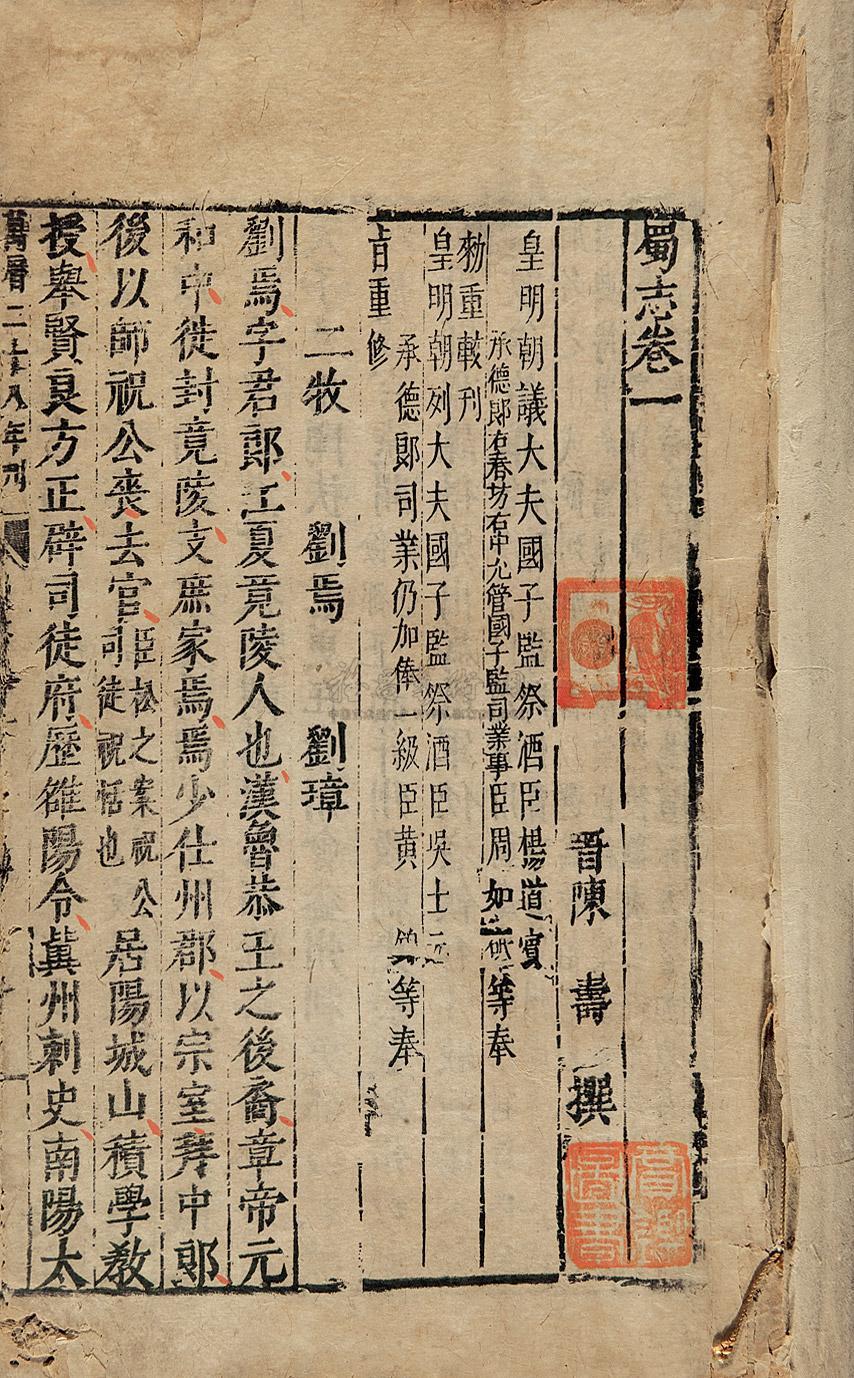 蜀志卷一
晉陳壽撰
皇明朝議大夫國子監祭酒臣楊道賓
承德郎右春坊右中允管國子監司業事臣周如砥等奉
勑重較刊
皇明朝列大夫國子監祭酒臣吳士元
承德郎司業仍加俸一級臣黃 等奉
旨重修
二牧 劉焉 劉璋
劉焉字君郎江夏竟陵人也漢魯恭王之後裔章帝元
和中徙封竟陵支庶家焉焉少仕州郡以宗室拜中郎
後以師祝公喪去官臣松之案祝公司徒祝恬也居陽城山積學敎
授舉賢良方正辟司徒府歷雒陽令冀州刺史南陽太
萬曆二十八年刊